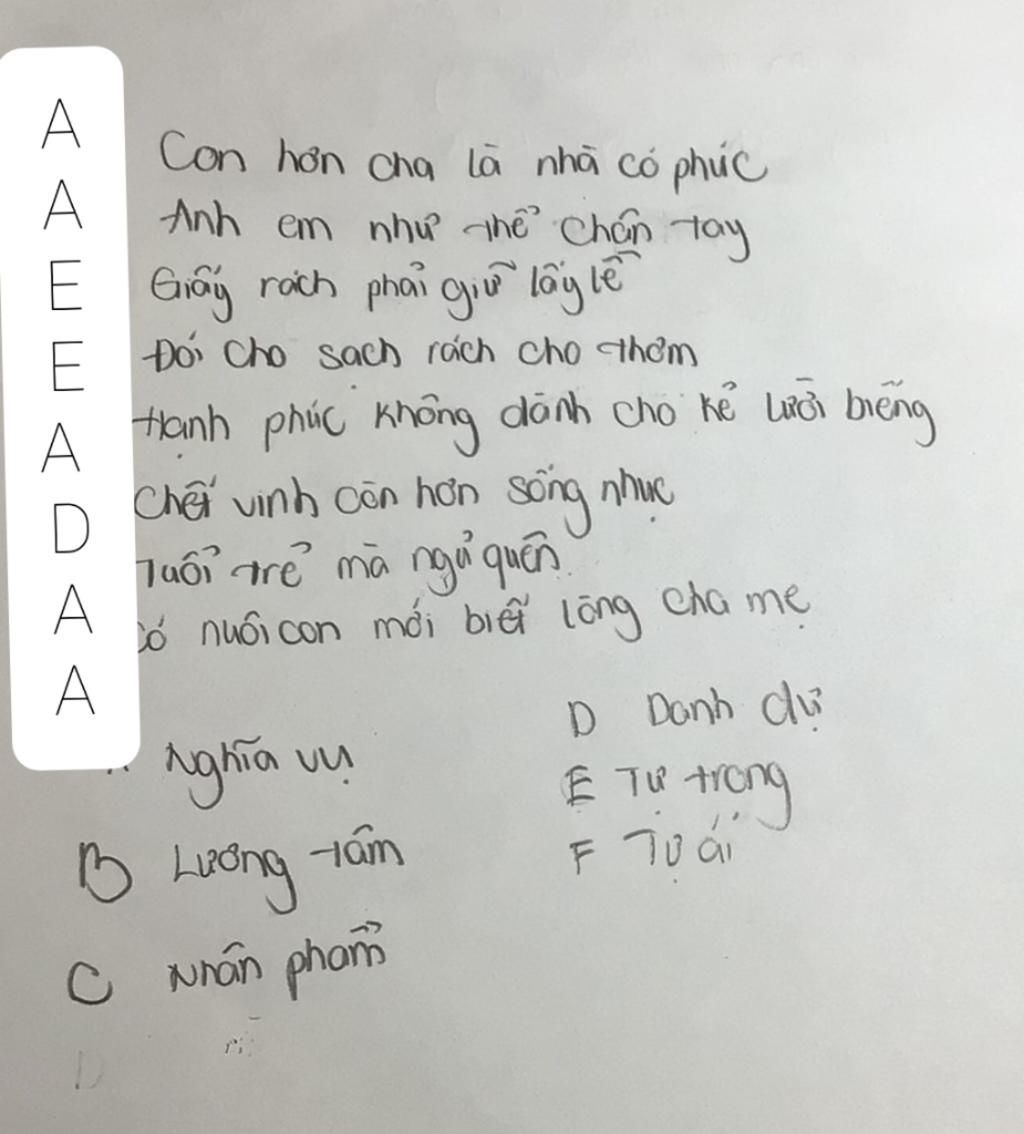 A
A
E
E
A
D
A
A
Con hơn cha là nhà có phúc
Anh em như thể chân tay
Giấy rách phải giữ lấy lề
Đói cho sạch rách cho thơm
Hạnh phúc không dành cho kẻ lười biếng
Chết vinh còn hơn sống nhục
Tuổi trẻ mà ngủ quên
có nuôi con mới biết lòng cha mẹ
Nghĩa vụ
B Lương tâm
C Nhân phẩm
D Danh dự
E Tự trọng
F Tự ái
D